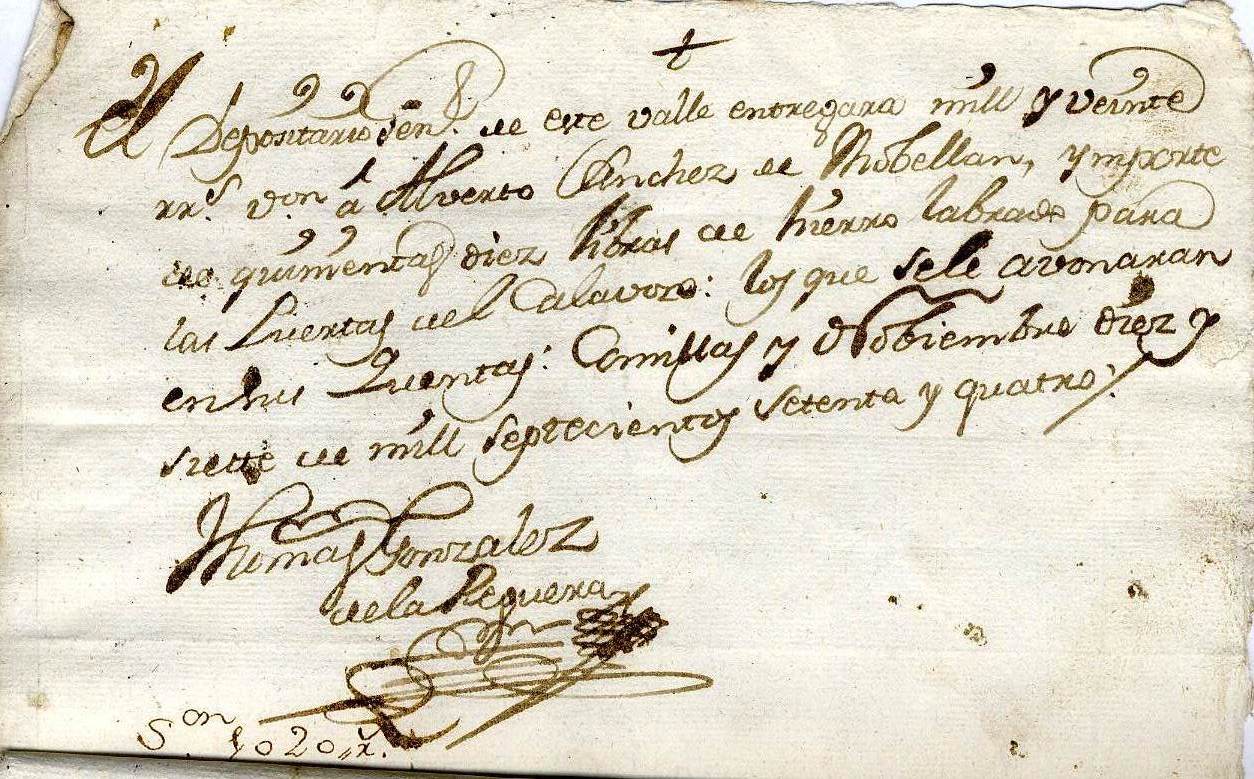 El Depositario Gen.l de este valle entregara mill y veinte
rr.s v.on a Alverto Sanchez de Mobellan, ymporte
de quinientas diez libras de hierro labrado para
las Puertas del Calavozo: los que sele avonaran
en sus Quentas: Comillas y Nobiembre diez y
siette de millseptecientos setenta y quatro:
Thomas Gonzalez
de la Reguera
Son 1020 r.